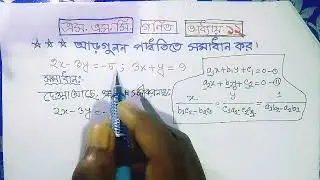 এস. এস. সি. গণিত অধ্যায় ১২
★ ★ ★ আড়গুনন পদ্ধতিতে সমাধান কর।
2x - 3y = -5 ; 3x + y = 9
সমাধান:
দেওয়া আছে,
2x - 3y = -
a₁x + b₁y + c₁ = 0 - (i)
a₂x + b₂y + c₂ = 0 - (ii)
x/(b₁c₂ - b₂c₁) = y/(c₁a₂ - c₂a₁) = 1/(a₁b₂ - a₂b₁)